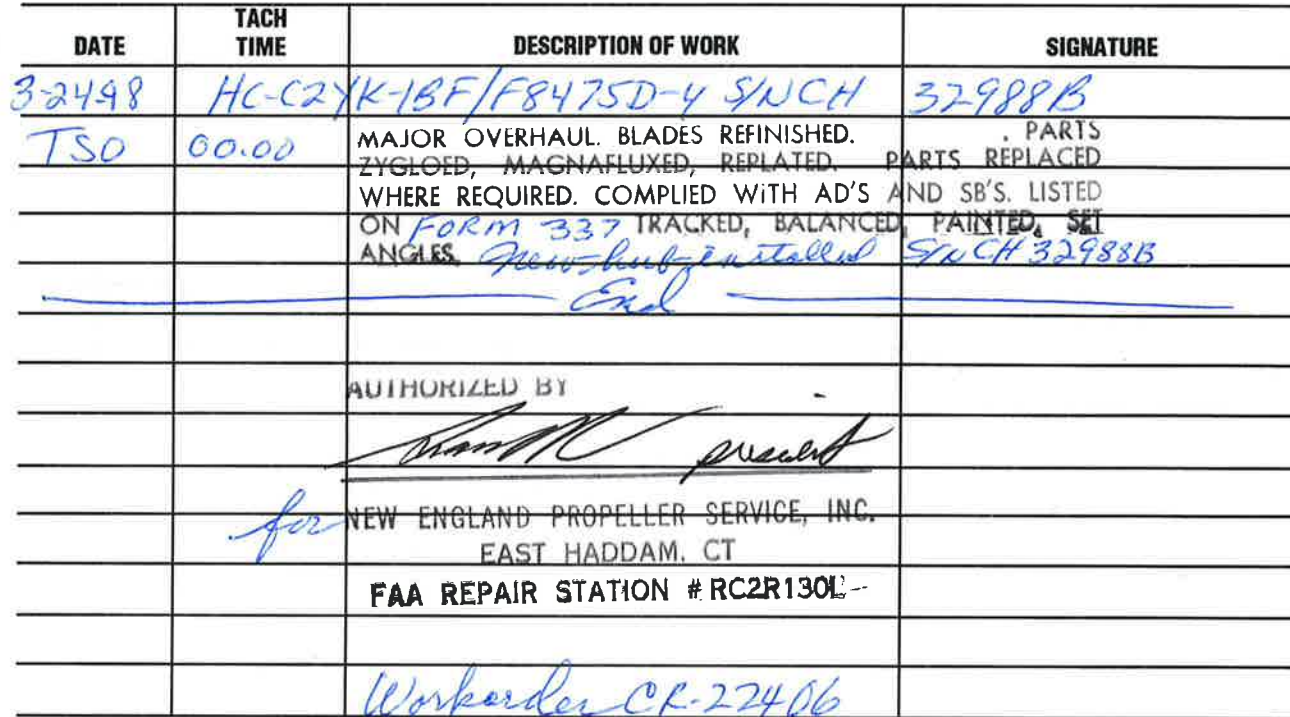 DATE TACH TIME DESCRIPTION OF WORK SIGNATURE
3-24-98 HC-C2YK-1BF/F8475D-4 S/N CH 32988B
TSO 00.00 MAJOR OVERHAUL. BLADES REFINISHED. . PARTS
ZYGLOED, MAGNAFLUXED, REPLATED. PARTS REPLACED
WHERE REQUIRED. COMPLIED WiTH AD'S AND SB'S. LISTED
ON FORM 337 TRACKED, BALANCED, PAINTED, SET
ANGLES. New hub installed S/N CH 32988B
End
AUTHORIZED BY
president
for NEW ENGLAND PROPELLER SERVICE, INC.
EAST HADDAM. CT
FAA REPAIR STATION # RC2R130L
Workorder CR-22406